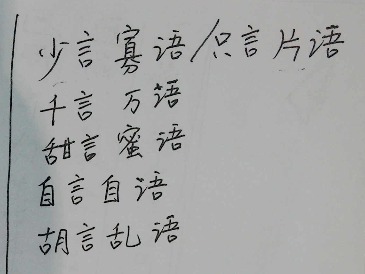 少言寡语/只言片语
千言万语
甜言蜜语
自言自语
胡言乱语